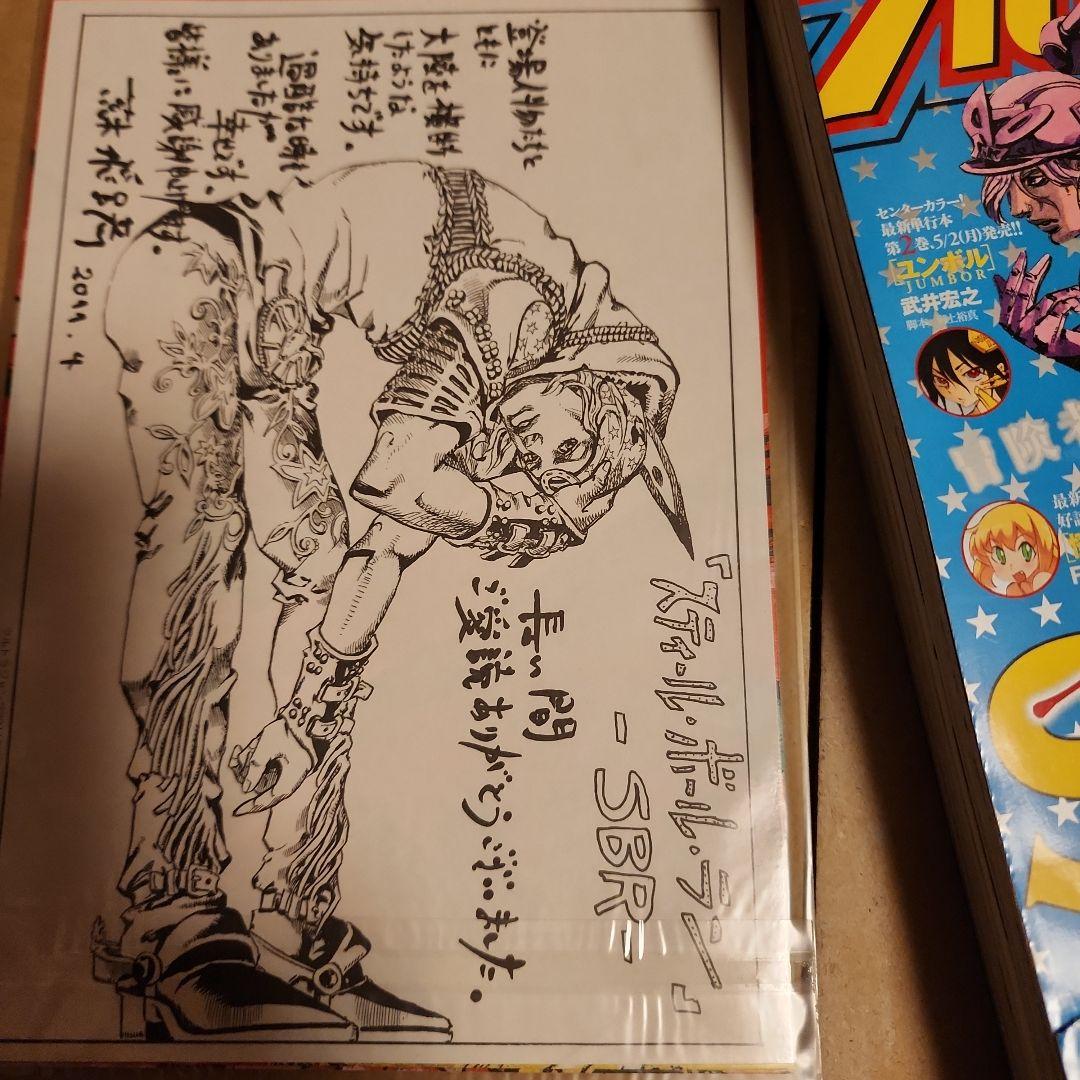 登場人物たちと
ともに
大陸を横断
したような
気持ちです。
過酷な時も
ありましたが
幸せです。
皆様に感謝致します。
荒木飛呂彦
2011.4
『スティール・ボール・ラン』
-SBR-
長い間
ご愛読ありがとうございました。
センターカラー!
最新単行本
第2巻、5/2(月)発売!!
[ユンボル]
JUMBOR
武井宏之
脚本
上裕真
最新